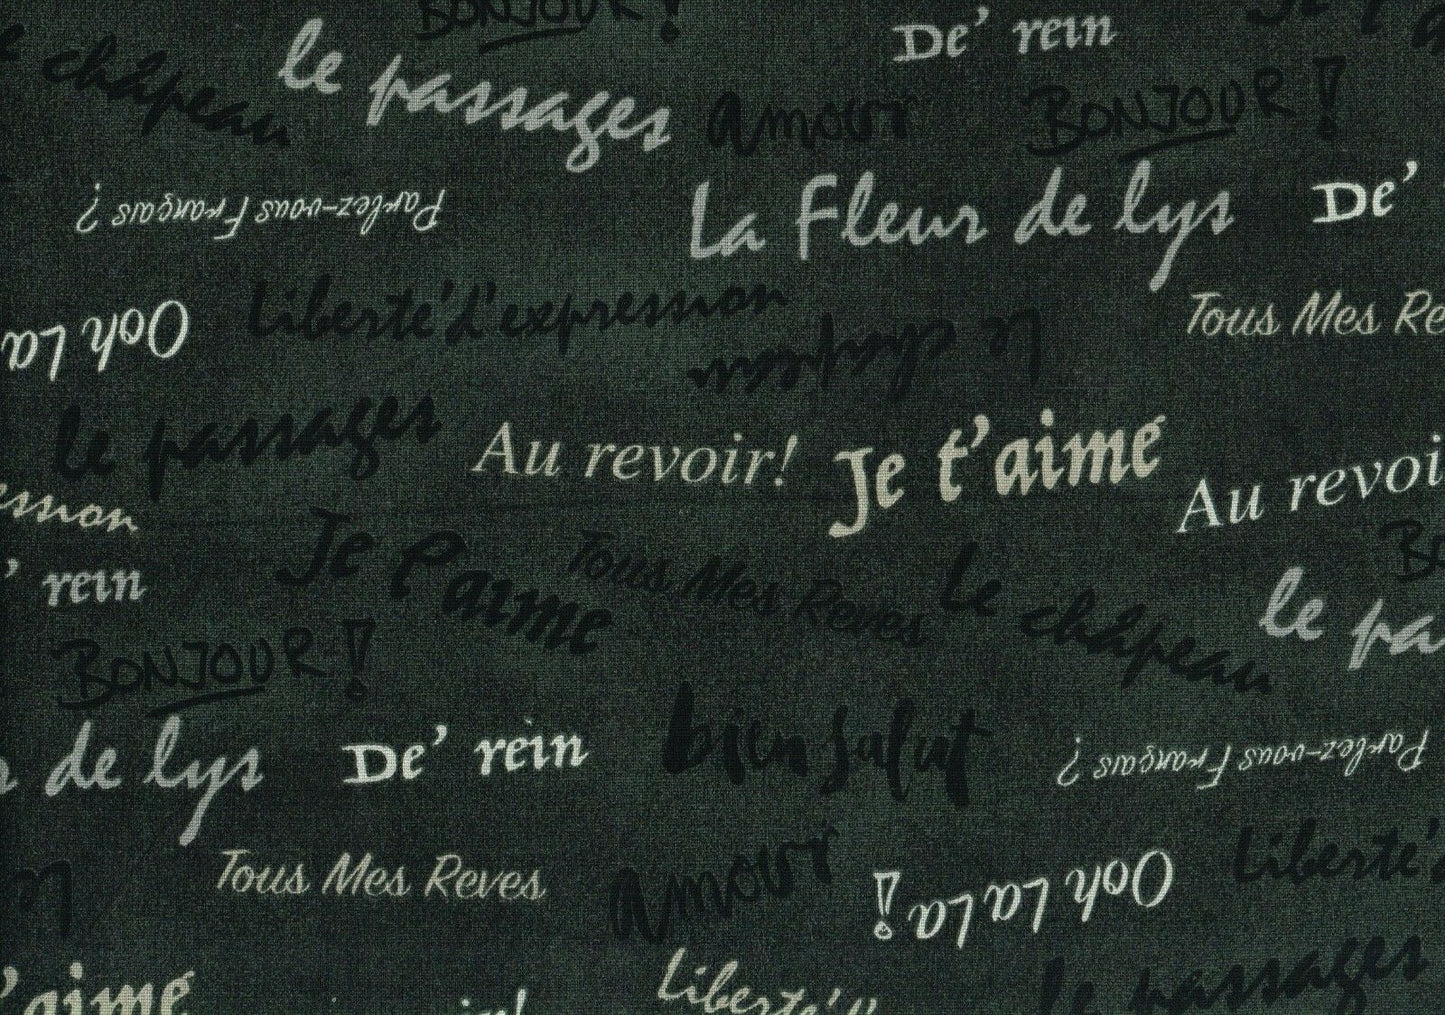 BONJOUR !
De' rein
Je t'a
le chapeau
le passages
amour
BONJOUR !
Parlez-vous Français ?
La Fleur de lys
De'
Ooh La
liberté d'expression
Tous Mes Re
Le chapeau
le passages
Au revoir!
Je t'aime
Au revoi
ession
' rein
Je t'aime
Tous Mes Reves
Le chapeau
le pa
Bo
BONJOUR !
r de lys
De' rein
bien salut
Parlez-vous Français ?
Tous Mes Reves
amour
Ooh La La !
Liberté
'aime
ir!
Liberté d'
le passages